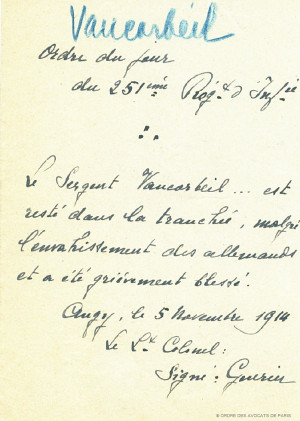 Vancorbeil
Ordre du jour
du 251ième Rég.t d'Inf.ie
Le Sergent Vancorbeil... est
resté dans la tranchée, malgré
l'envahissement des allemands
et a été grièvement blessé.
Augy, le 5 Novembre 1914
Le Lt. Colonel:
Signé: Guerin
© ORDRE DES AVOCATS DE PARIS